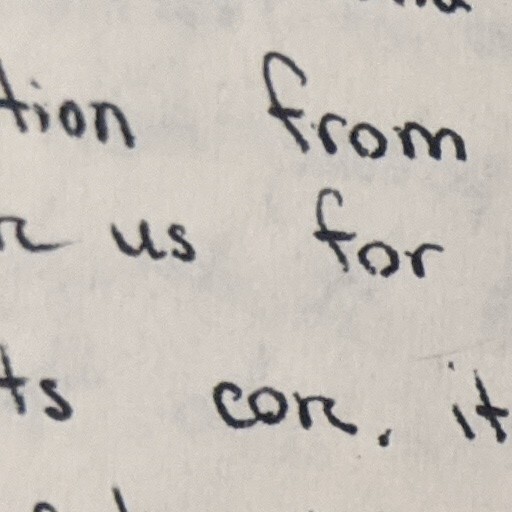 tion from
us for
ts con. it